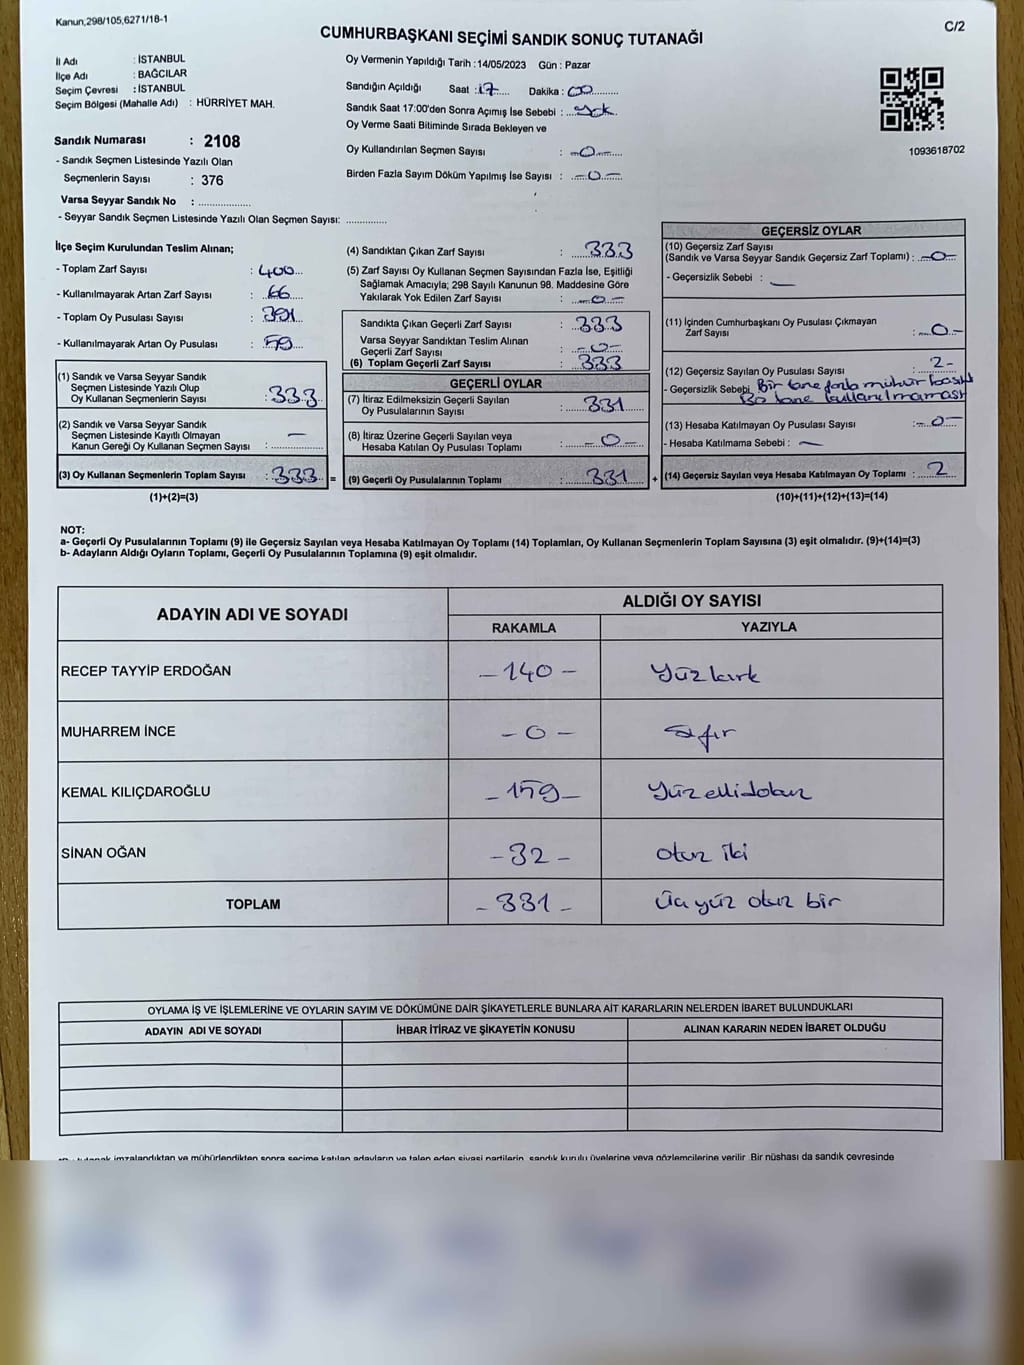 Kanun,298/105,6271/18-1
C/2
CUMHURBAŞKANI SEÇİMİ SANDIK SONUÇ TUTANAĞI
İl Adı : İSTANBUL
İlçe Adı : BAĞCILAR
Seçim Çevresi : İSTANBUL
Seçim Bölgesi (Mahalle Adı) : HÜRRİYET MAH.
Sandık Numarası : 2108
- Sandık Seçmen Listesinde Yazılı Olan
Seçmenlerin Sayısı : 376
Varsa Seyyar Sandık No : ..................
- Seyyar Sandık Seçmen Listesinde Yazılı Olan Seçmen Sayısı: ..............
Oy Vermenin Yapıldığı Tarih : 14/05/2023 Gün : Pazar
Sandığın Açıldığı Saat : 17 Dakika : 00
Sandık Saat 17:00'den Sonra Açımış İse Sebebi : Yok
Oy Verme Saati Bitiminde Sırada Bekleyen ve
Oy Kullandırılan Seçmen Sayısı : -0-
Birden Fazla Sayım Döküm Yapılmış İse Sayısı : -0-
1093618702
İlçe Seçim Kurulundan Teslim Alınan;
- Toplam Zarf Sayısı : 400
- Kullanılmayarak Artan Zarf Sayısı : 66
- Toplam Oy Pusulası Sayısı :
- Kullanılmayarak Artan Oy Pusulası : 59
(1) Sandık ve Varsa Seyyar Sandık
Seçmen Listesinde Yazılı Olup
Oy Kullanan Seçmenlerin Sayısı : 333
(2) Sandık ve Varsa Seyyar Sandık
Seçmen Listesinde Kayıtlı Olmayan
Kanun Gereği Oy Kullanan Seçmen Sayısı : —
(3) Oy Kullanan Seçmenlerin Toplam Sayısı : 333 =
(1)+(2)=(3)
(4) Sandıktan Çıkan Zarf Sayısı : 333
(5) Zarf Sayısı Oy Kullanan Seçmen Sayısından Fazla İse, Eşitliği
Sağlamak Amacıyla; 298 Sayılı Kanunun 98. Maddesine Göre
Yakılarak Yok Edilen Zarf Sayısı : -0-
Sandıkta Çıkan Geçerli Zarf Sayısı : 333
Varsa Seyyar Sandıktan Teslim Alınan
Geçerli Zarf Sayısı : -0-
(6) Toplam Geçerli Zarf Sayısı : 333
GEÇERLİ OYLAR
(7) İtiraz Edilmeksizin Geçerli Sayılan
Oy Pusulalarının Sayısı : 331
(8) İtiraz Üzerine Geçerli Sayılan veya
Hesaba Katılan Oy Pusulası Toplamı : -0-
(9) Geçerli Oy Pusulalarının Toplamı : 331 +
GEÇERSİZ OYLAR
(10) Geçersiz Zarf Sayısı
(Sandık ve Varsa Seyyar Sandık Geçersiz Zarf Toplamı) : -0-
- Geçersizlik Sebebi : —
(11) İçinden Cumhurbaşkanı Oy Pusulası Çıkmayan
Zarf Sayısı : -0-
(12) Geçersiz Sayılan Oy Pusulası Sayısı : 2-
- Geçersizlik Sebebi Bir tane fazla mühür basılı
tane kullanılmamast
(13) Hesaba Katılmayan Oy Pusulası Sayısı : -0-
- Hesaba Katılmama Sebebi : —
(14) Geçersiz Sayılan veya Hesaba Katılmayan Oy Toplamı : 2
(10)+(11)+(12)+(13)=(14)
NOT:
a- Geçerli Oy Pusulalarının Toplamı (9) ile Geçersiz Sayılan veya Hesaba Katılmayan Oy Toplamı (14) Toplamları, Oy Kullanan Seçmenlerin Toplam Sayısına (3) eşit olmalıdır. (9)+(14)=(3)
b- Adayların Aldığı Oyların Toplamı, Geçerli Oy Pusulalarının Toplamına (9) eşit olmalıdır.
ADAYIN ADI VE SOYADI
ALDIĞI OY SAYISI
RAKAMLA YAZIYLA
RECEP TAYYİP ERDOĞAN -140- Yüzkırk
MUHARREM İNCE -0- Sıfır
KEMAL KILIÇDAROĞLU -159- Yüzellidokuz
SİNAN OĞAN -32- otuz iki
TOPLAM -331- Üçyüz otuz bir
OYLAMA İŞ VE İŞLEMLERİNE VE OYLARIN SAYIM VE DÖKÜMÜNE DAİR ŞİKAYETLERLE BUNLARA AİT KARARLARIN NELERDEN İBARET BULUNDUKLARI
ADAYIN ADI VE SOYADI İHBAR İTİRAZ VE ŞİKAYETİN KONUSU ALINAN KARARIN NEDEN İBARET OLDUĞU
imzalandıktan ve mühürlendikten sonra seçime katılan adayların ve talep eden siyasi partilerin, sandık kurulu üyelerine veya gözlemcilerine verilir. Bir nüshası da sandık çevresinde